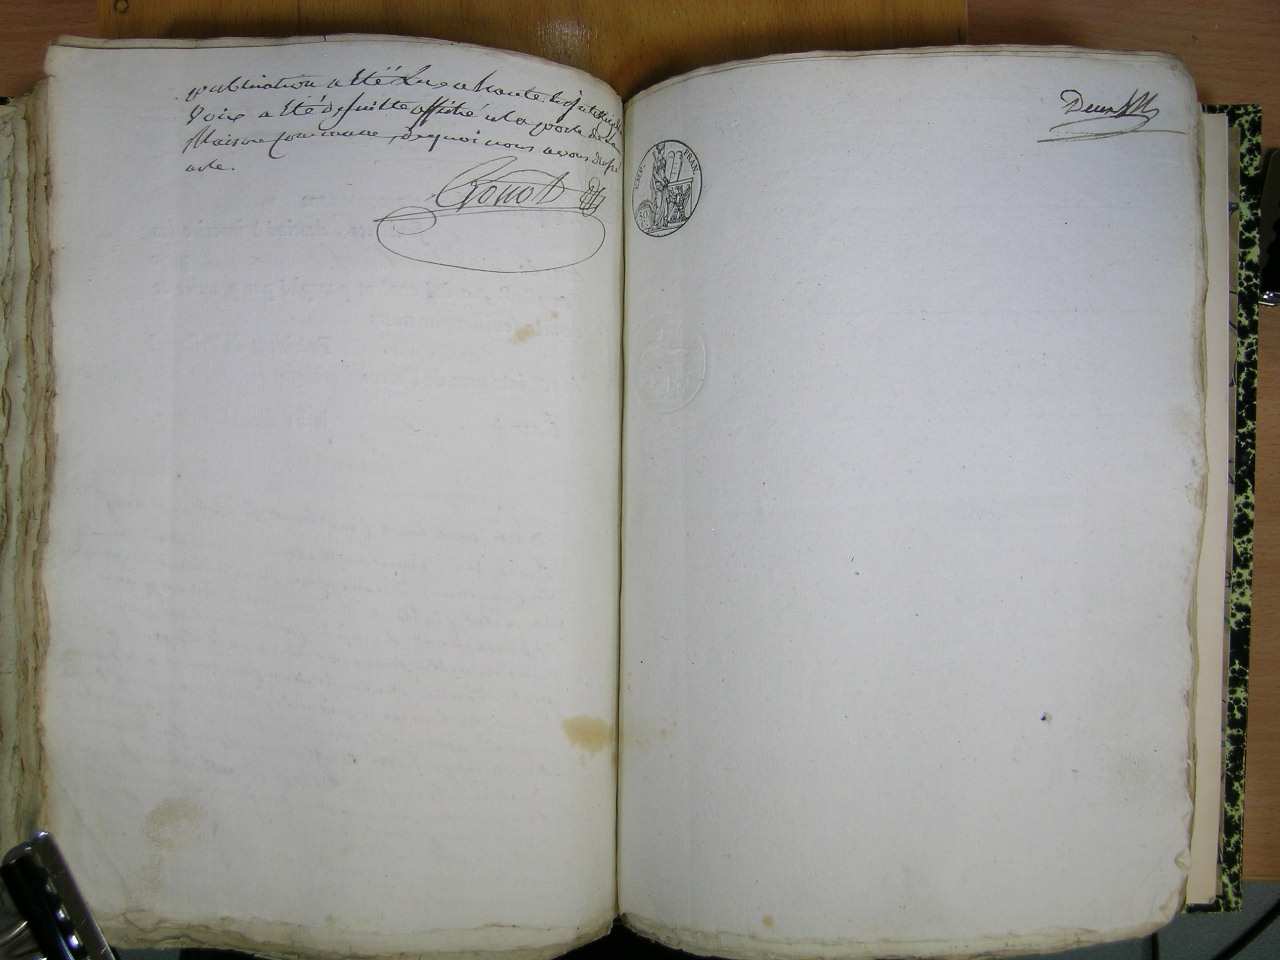 publication a été Lue a haute
Voix a été de suitte affiché a la porte de la
Maison Commune, de quoi nous avons dressé
acte.
EMP. FRAN.
Deux